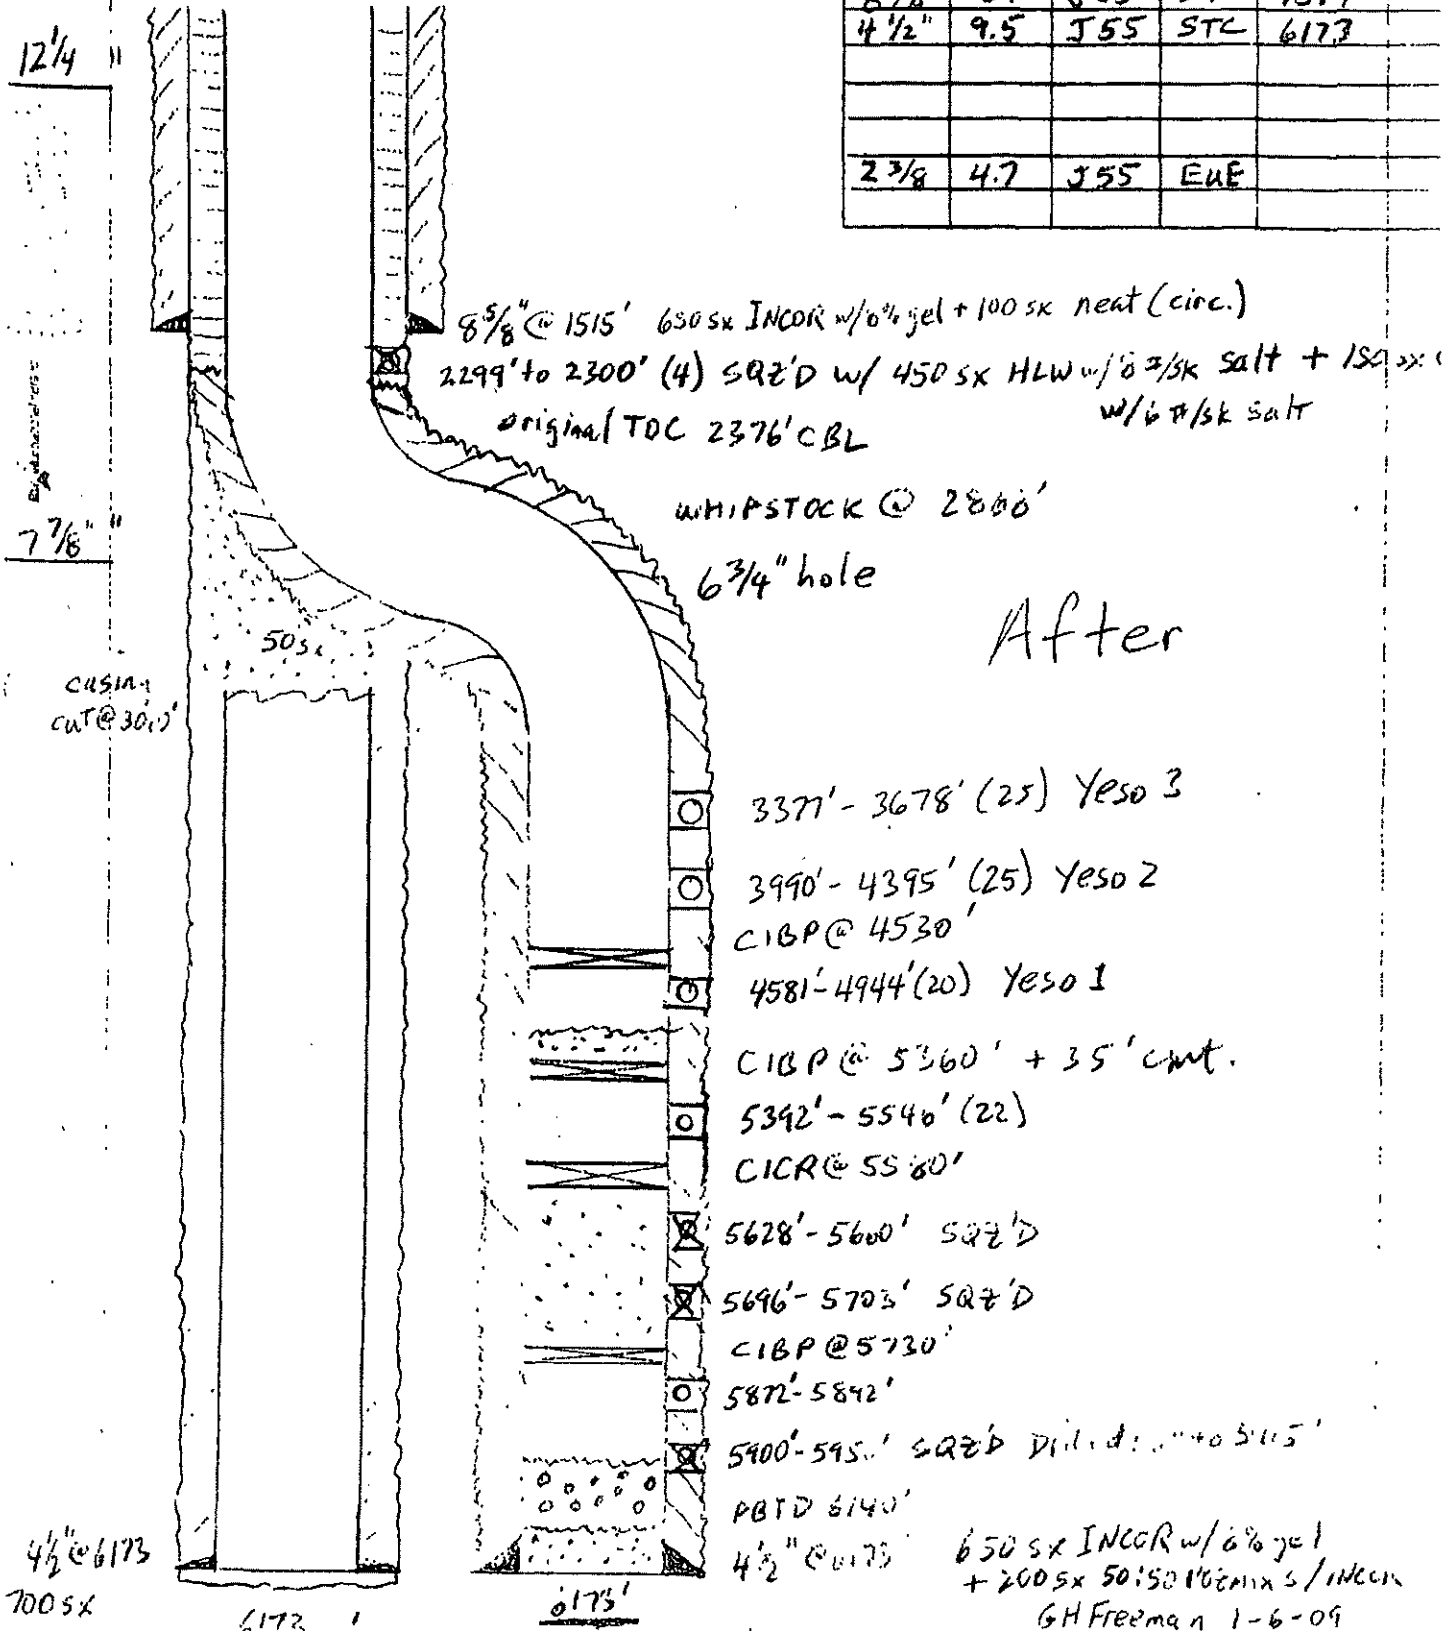 12 1/4"
4 1/2" 9.5 J55 STC 6173
2 3/8 4.7 J55 EUE
8 5/8" @ 1515' 650 sx INCOR w/6% gel + 100 sx neat (circ.)
2299' to 2300' (4) SQZ'D w/ 450 sx HLW w/ 6 #/sk salt +
w/6 #/sk salt
original TOC 2376' CBL
WHIPSTOCK @
7 7/8" "
6 3/4" hole
After
50sx
casing
cut @
3377' - 3678' (25) Yeso 3
3990' - 4395' (25) Yeso 2
CIBP @ 4530'
4581' - 4944' (20) Yeso 1
CIBP @ 5360' + 35' cmt.
5392' - 5546' (22)
CICR @ 5560'
5628' - 5600' SQZ'D
5696' - 5703' SQZ'D
CIBP @ 5730'
5872' - 5892'
5900' - SQZ'D
PBTD 6140'
4 1/2" @ 6173
4 1/2" @ 6173'
650 sx INCOR w/ 6% gel
700 sx
+ 200 sx 50:50
6173'
6173'
GH Freeman 1-6-09